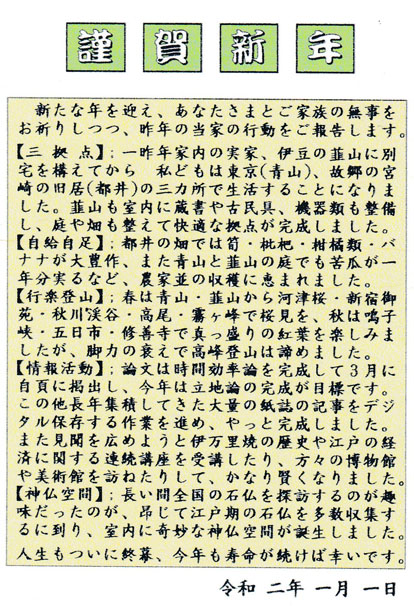 謹賀新年
新たな年を迎え、あなたさまとご家族の無事を
お祈りしつつ、昨年の当家の行動をご報告します。
【三拠点】;一昨年家内の実家、伊豆の韮山に別
宅を構えてから 私どもは東京(青山)、故郷の宮
崎の旧居(都井)の三カ所で生活することになりま
した。韮山も室内に蔵書や古民具、機器類も整備
し、庭や畑も整えて快適な拠点が完成しました。
【自給自足】;都井の畑では筍・枇杷・柑橘類・バ
ナナが大豊作、また青山と韮山の庭でも苦瓜が一
年分実るなど、農家並の収穫に恵まれました。
【行楽登山】;春は青山・韮山から河津桜・新宿御
苑・秋川渓谷・高尾・霧ヶ峰で桜見を、秋は鳴子
峡・五日市・修善寺で真っ盛りの紅葉を楽しみま
したが、脚力の衰えで高峰登山は諦めました。
【情報活動】;論文は時間効率論を完成して3月に
自頁に掲出し、今年は立地論の完成が目標です。
この他長年集積してきた大量の紙誌の記事をデジ
タル保存する作業を進め、やっと完成しました。
また見聞を広めようと伊万里焼の歴史や江戸の経
済に関する連続講座を受講したり、方々の博物館
や美術館を訪ねたりして、かなり賢くなりました。
【神仏空間】;長い間全国の石仏を探訪するのが趣
味だったのが、昂じて江戸期の石仏を多数収集す
るに到り、室内に奇妙な神仏空間が誕生しました。
人生もついに終幕、今年も寿命が続けば幸いです。
令和 二年 一月 一日